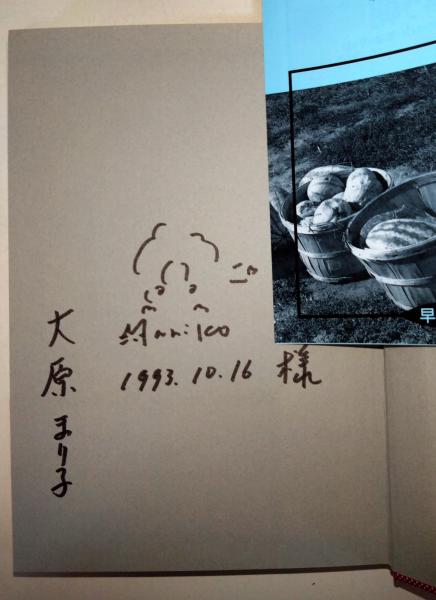 大原まり子
Mariko
1993.10.16
様
早